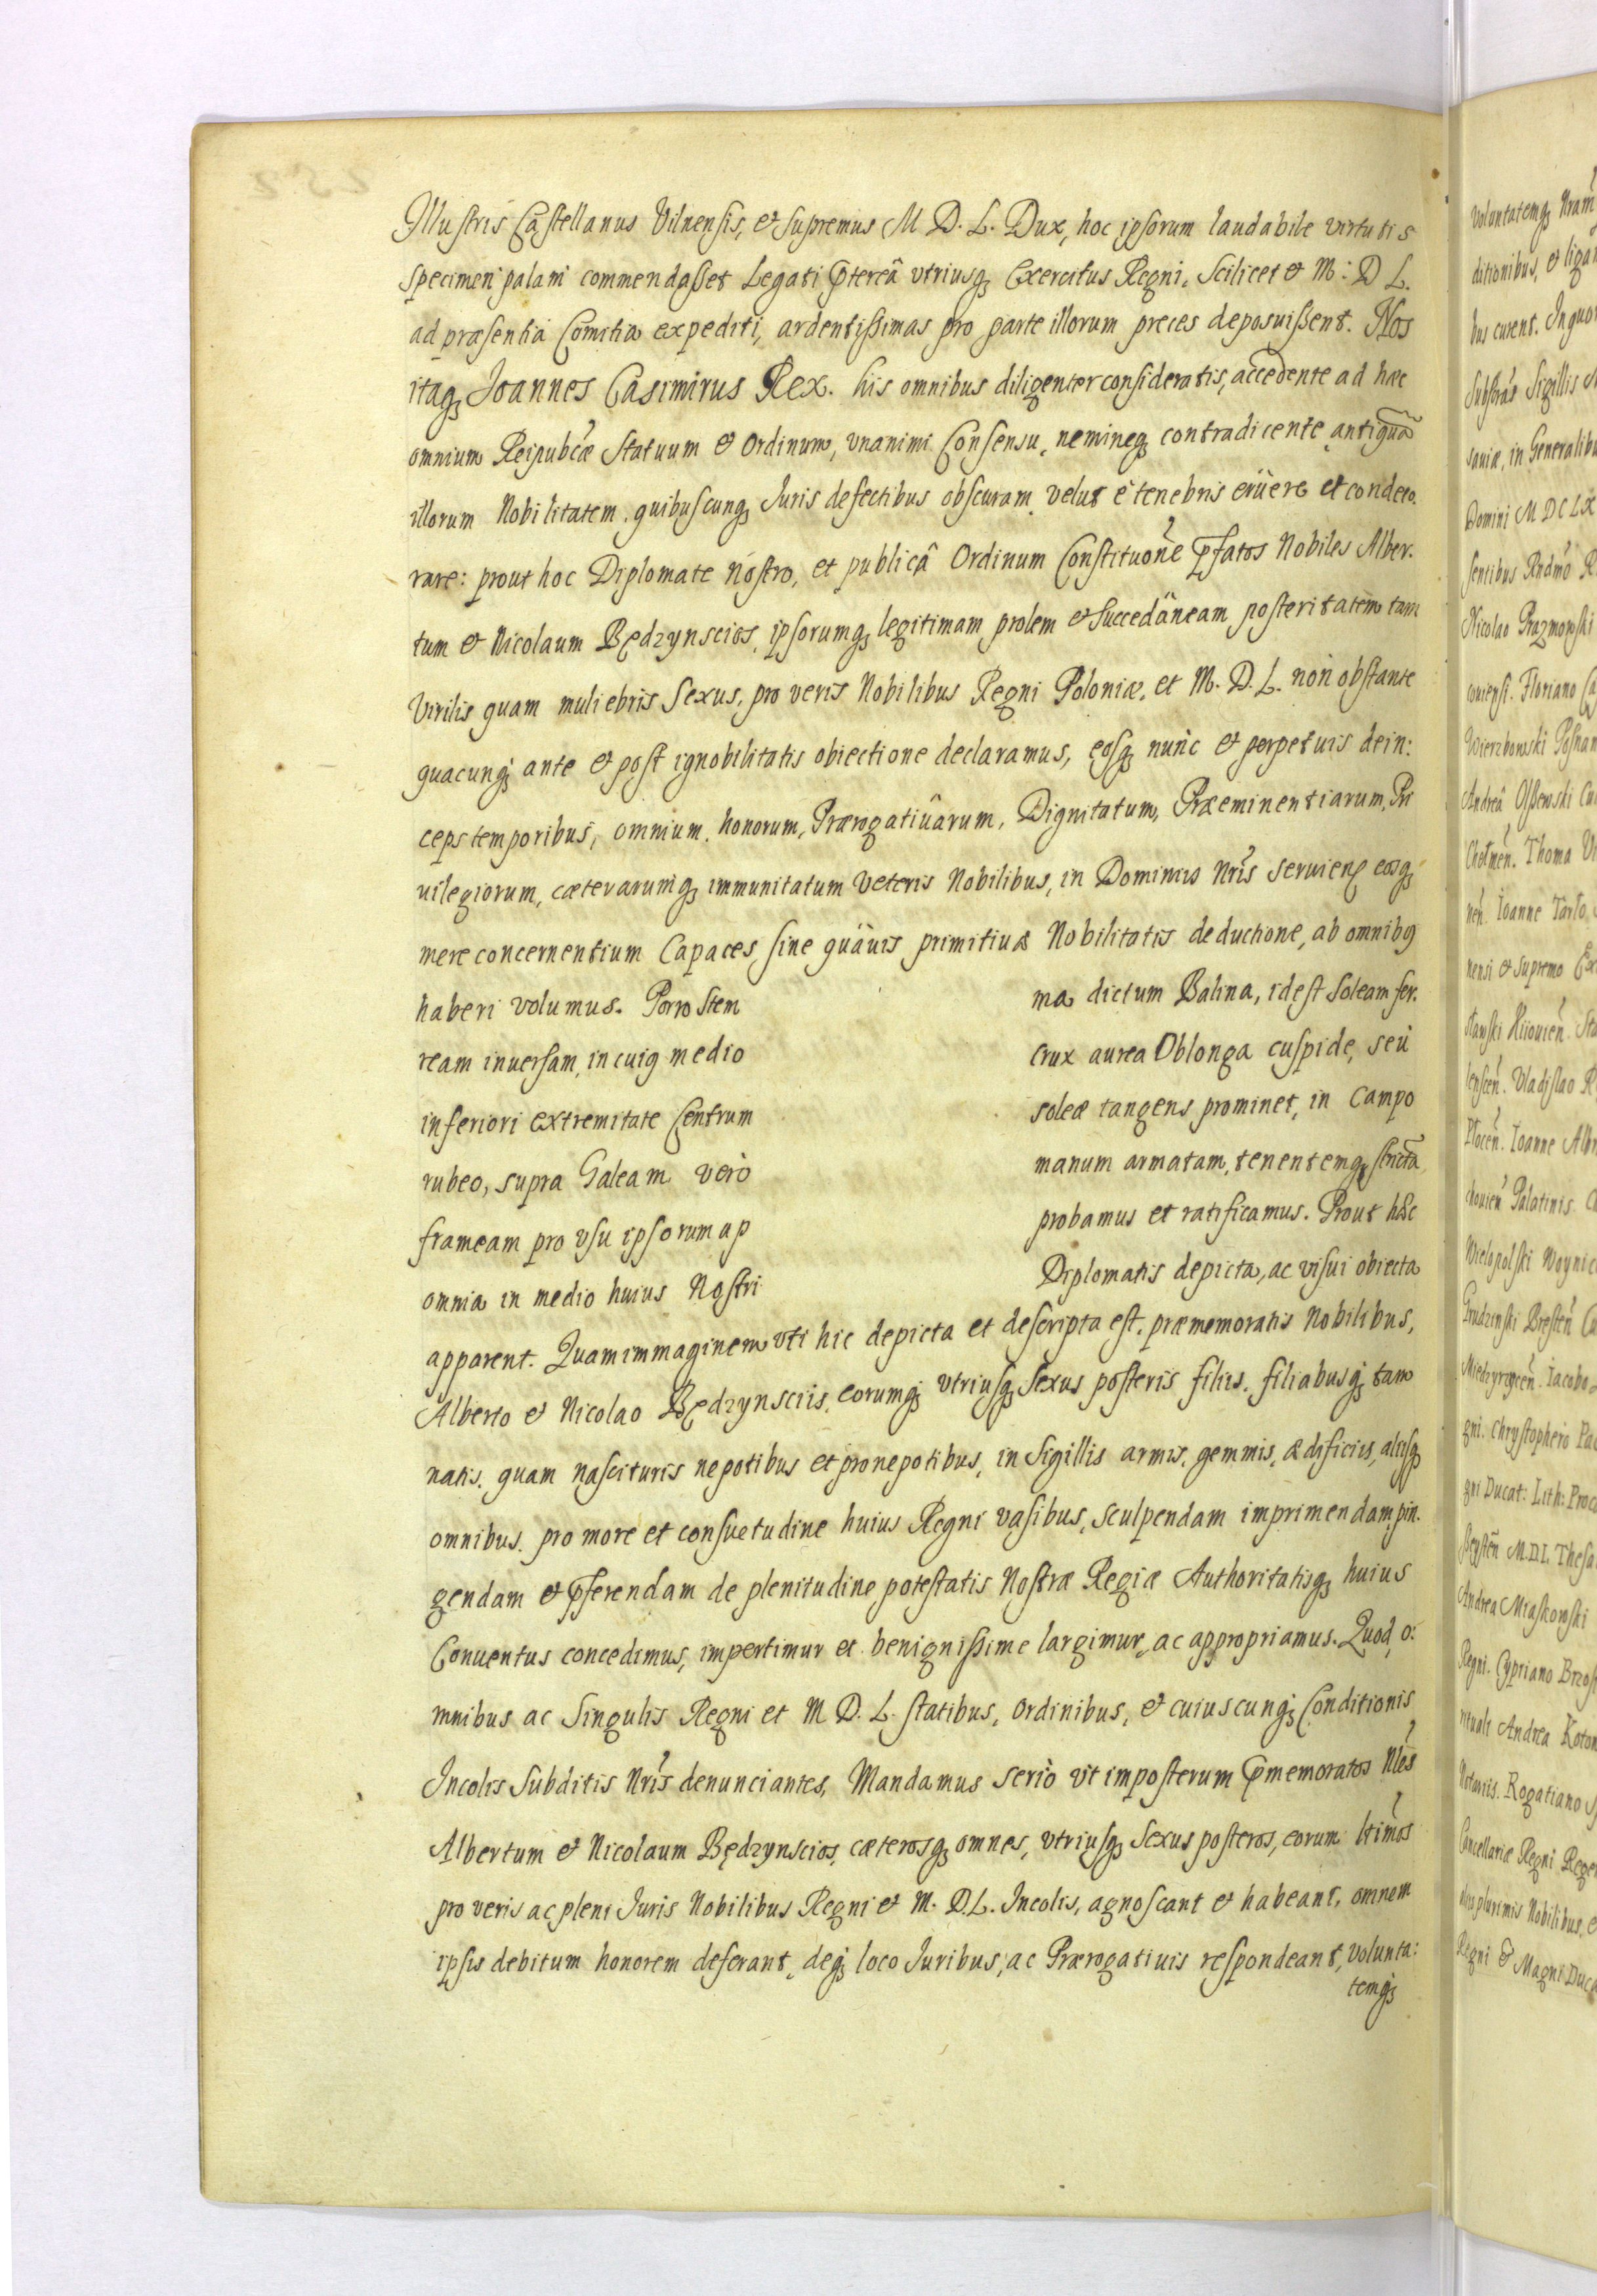 Illustris Castellanus Vilnensis, et supremus M D. L. Dux, hoc ipsorum laudabile virtutis
specimen palam commendasset Legati ꝑtereâ vtriusq; Exercitus Regni, Scilicet et M: D L.
ad præsentia Comitia expediti, ardentissimas pro parte illorum preces deposuissent. Nos
itaq; Joannes Casimirus Rex. his omnibus diligenter consideratis, accedente ad hæc
omnium Reipubcæ Statuum et Ordinum, vnanimi Consensu, nemineq; contradicente antiquã
illorum Nobilitatem, quibuscunq; Juris defectibus obscuram, velut è tenebris erüere et condeco.
rare: prout hoc Diplomate nostro, et publicâ Ordinum Constituone ꝑfatos Nobiles Alber.
tum et Nicolaum Będzynscios, ipsorumq; legitimam prolem et succedäneam posteritatem tam
Virilis quam muliebris Sexus, pro veris Nobilibus Regni Poloniæ, et M. D. L. non obstante
quacunq; ante et post ignobilitatis obiectione declaramus, eosq; nunc et perpetuis dein:
ceps temporibus, omnium honorum, Prærogatiûarum, Dignitatum, Præeminentiarum, Pri
uilegiorum, cæterarumq; immunitatum Veteris Nobilibus, in Dominiis Nris seruien eosq;
mere concernentium Capaces, sine quäuis primitiuæ Nobilitatis deductione, ab omnibq
haberi volumus. Porro Stem ma dictum Balina, idest Soleam fer.
ream inuersam, in cuiq medio Crux aurea Oblonga cuspide, seù
inferiori extremitate Centrum soleæ tangens prominet, in Campo
rubeo, supra Galeam verò manum armatam, tenentemq; strictã
frameam pro vsu ipsorum ap probamus et ratificamus. Prout hæc
omnia in medio huius Nostri Diplomatis depicta, ac visui obiecta
apparent. Quam immaginem vti hic depicta et descripta est, præmemoratis Nobilibus,
Alberto et Nicolao Będzynsciis, eorumq; vtriusq; Sexus posteris filiis, filiabusq; tam
natis, quam nascituris nepotibus et pronepotibus, in Sigillis armis, gemmis, ædificiis, aliisq;
omnibus, pro more et consuetudine huius Regni vasibus, sculpendam imprimendam, pin.
gendam et ꝑferendam de plenitudine potestatis Nostræ Regiæ Authoritatisq; huius
Conuentus concedimus, impertimur et benignissime largimur, ac appropriamus. Quod o:
mnibus ac Singulis Regni et M D. L. statibus, Ordinibus, et cuiuscunq; Conditionis
Incolis Subditis Nris denunciantes, Mandamus seriò vt imposterum ꝑmemoratos Nles
Albertum et Nicolaum Będzynscios, cæterosq; omnes, vtriusq; Sexus posteros, eorum ltimos
pro veris ac pleni Juris Nobilibus Regni et M. D. L. Incolis, agnoscant et habeant, omnem
ipsis debitum honorem deferant, deq; loco Juribus, ac Prærogatiuis respondeant, volunta:
temq;
voluntatemq; Nram
ditionibus, et
bus curent. In
Sigillis
sauiæ, in
Domini M DC LX
sentibus Rndmo
Nicolao Prazmowski
Floriano
Wierzbowski
Andreâ
Thoma
Ioanne Tarło
nensi et supremo
Kiiouien
Vladislao
Ioanne
Palatinis
Wielopolski Woynic
Grudzinski
Iacobo
gni. Chrystophero Pac
gni Ducat: Lith:
M.D.L. Thesa
Andrea Miaskowski
Regni. Cypriano
Andrea
Notariis. Rogatiano
Cancellariæ Regni
plurimis Nobilibus,
Regni et Magni Duca